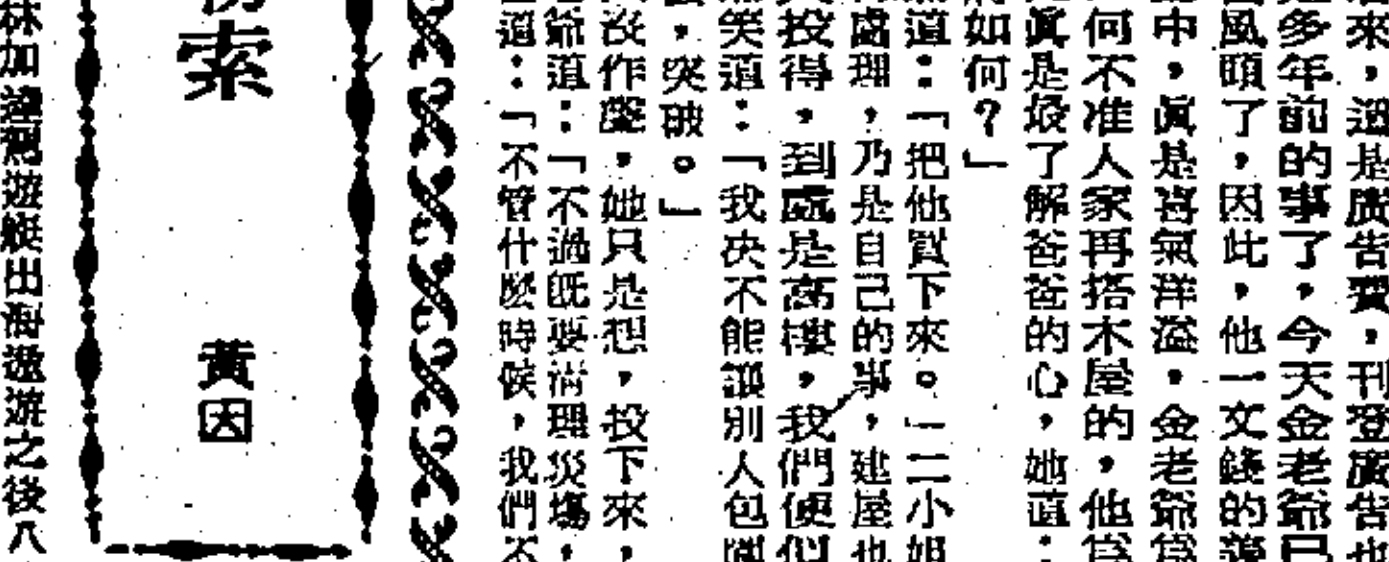 來，還是廣告費，刊登廣告也
多年前的事了，今天金老爺已
風頭了，因此，他一文錢的
中，眞是喜氣洋溢，金老爺爲
何不准人家再搭木屋的，他爲
眞是最了解爸爸的心，她道：
如何？」
道：「把他買下來。」二小姐
處理，乃是自己的事，建屋也
投得，到處是高樓，我們便似
笑道：「我决不能讓別人包圍
，突破。」
沒作聲，她只是想，投下來，
爺道：「不過旣要淸理災塲，
道：「不管什麼時候，我們不
索
黃因
加 遊艇出海遨游之後八